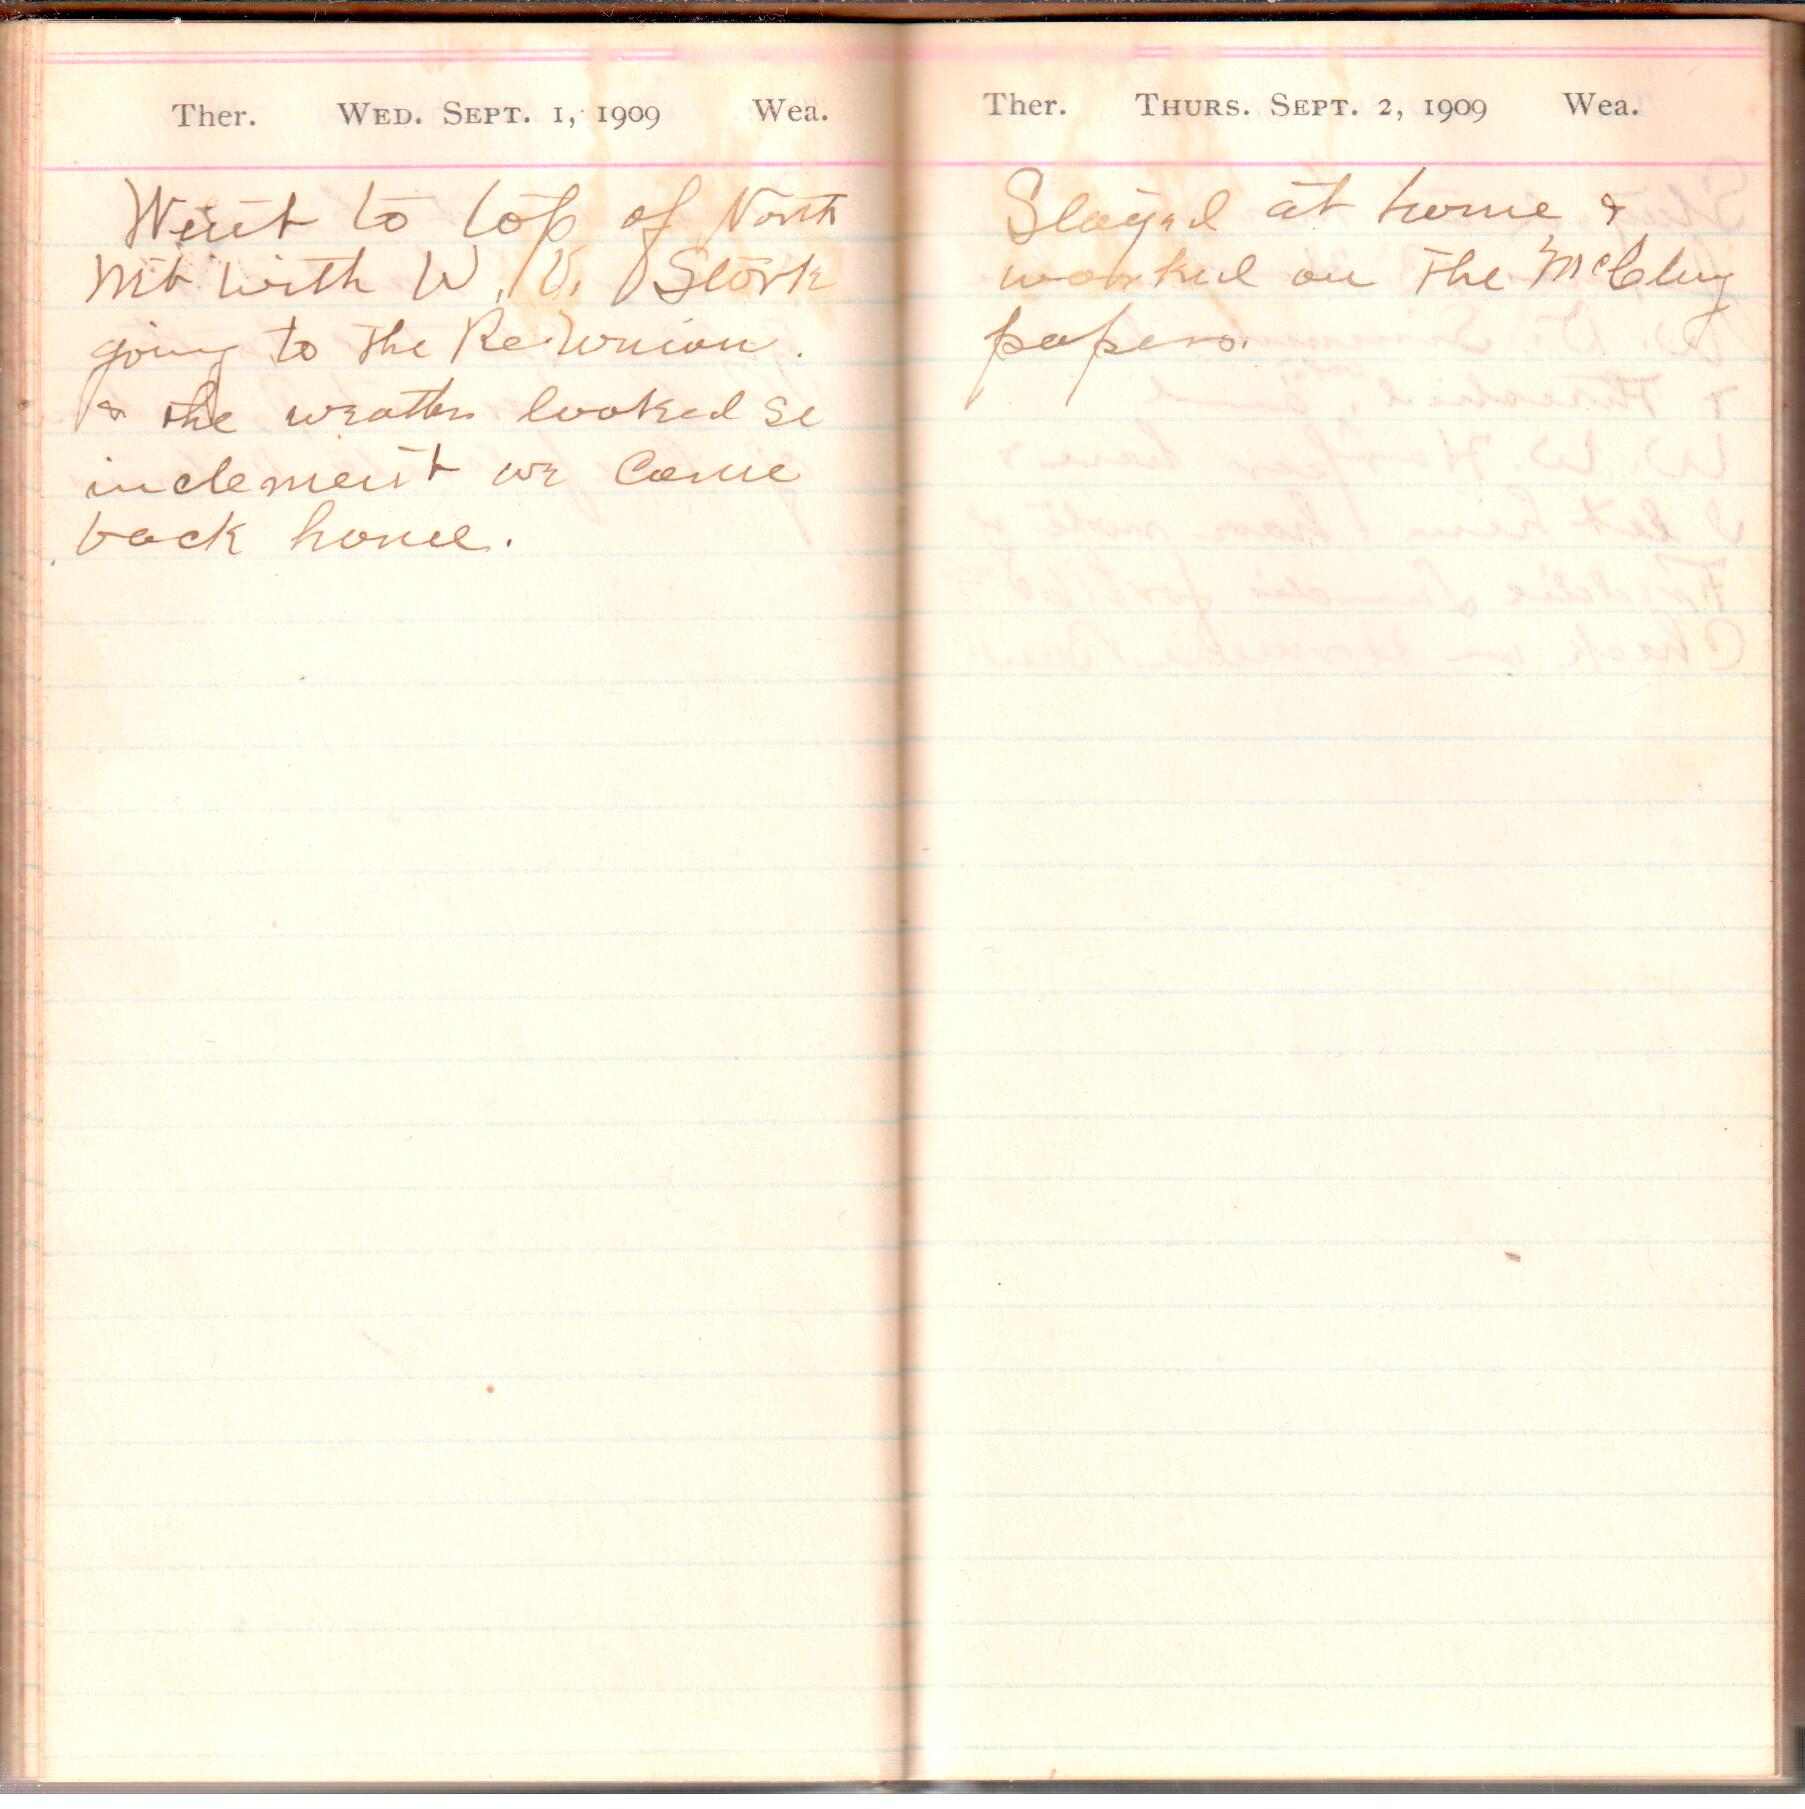 Ther. WED. SEPT. 1, 1909 Wea.
Went to top of North
Mt with W. Stork
going to the Re Union.
& the weather looked so
inclement we came
back home.
Ther. THURS. SEPT. 2, 1909 Wea.
Stayed at home &
worked on the McClung
papers.